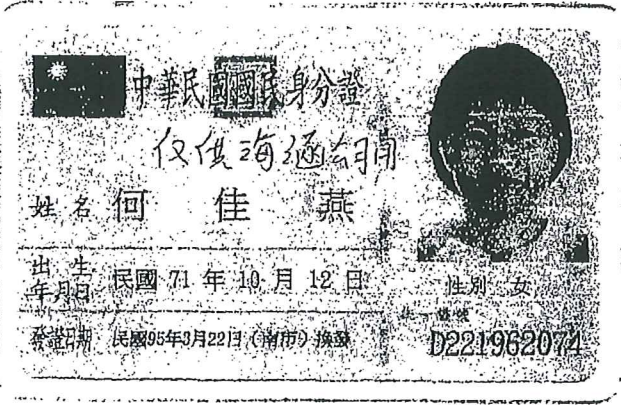 中華民國國民身分證
仅供海涵 用
姓名 何佳燕
出生年月日 民國 71 年 10 月 12 日
性別 女
發證日期 民國95年3月22日（南市）換發
D221962074